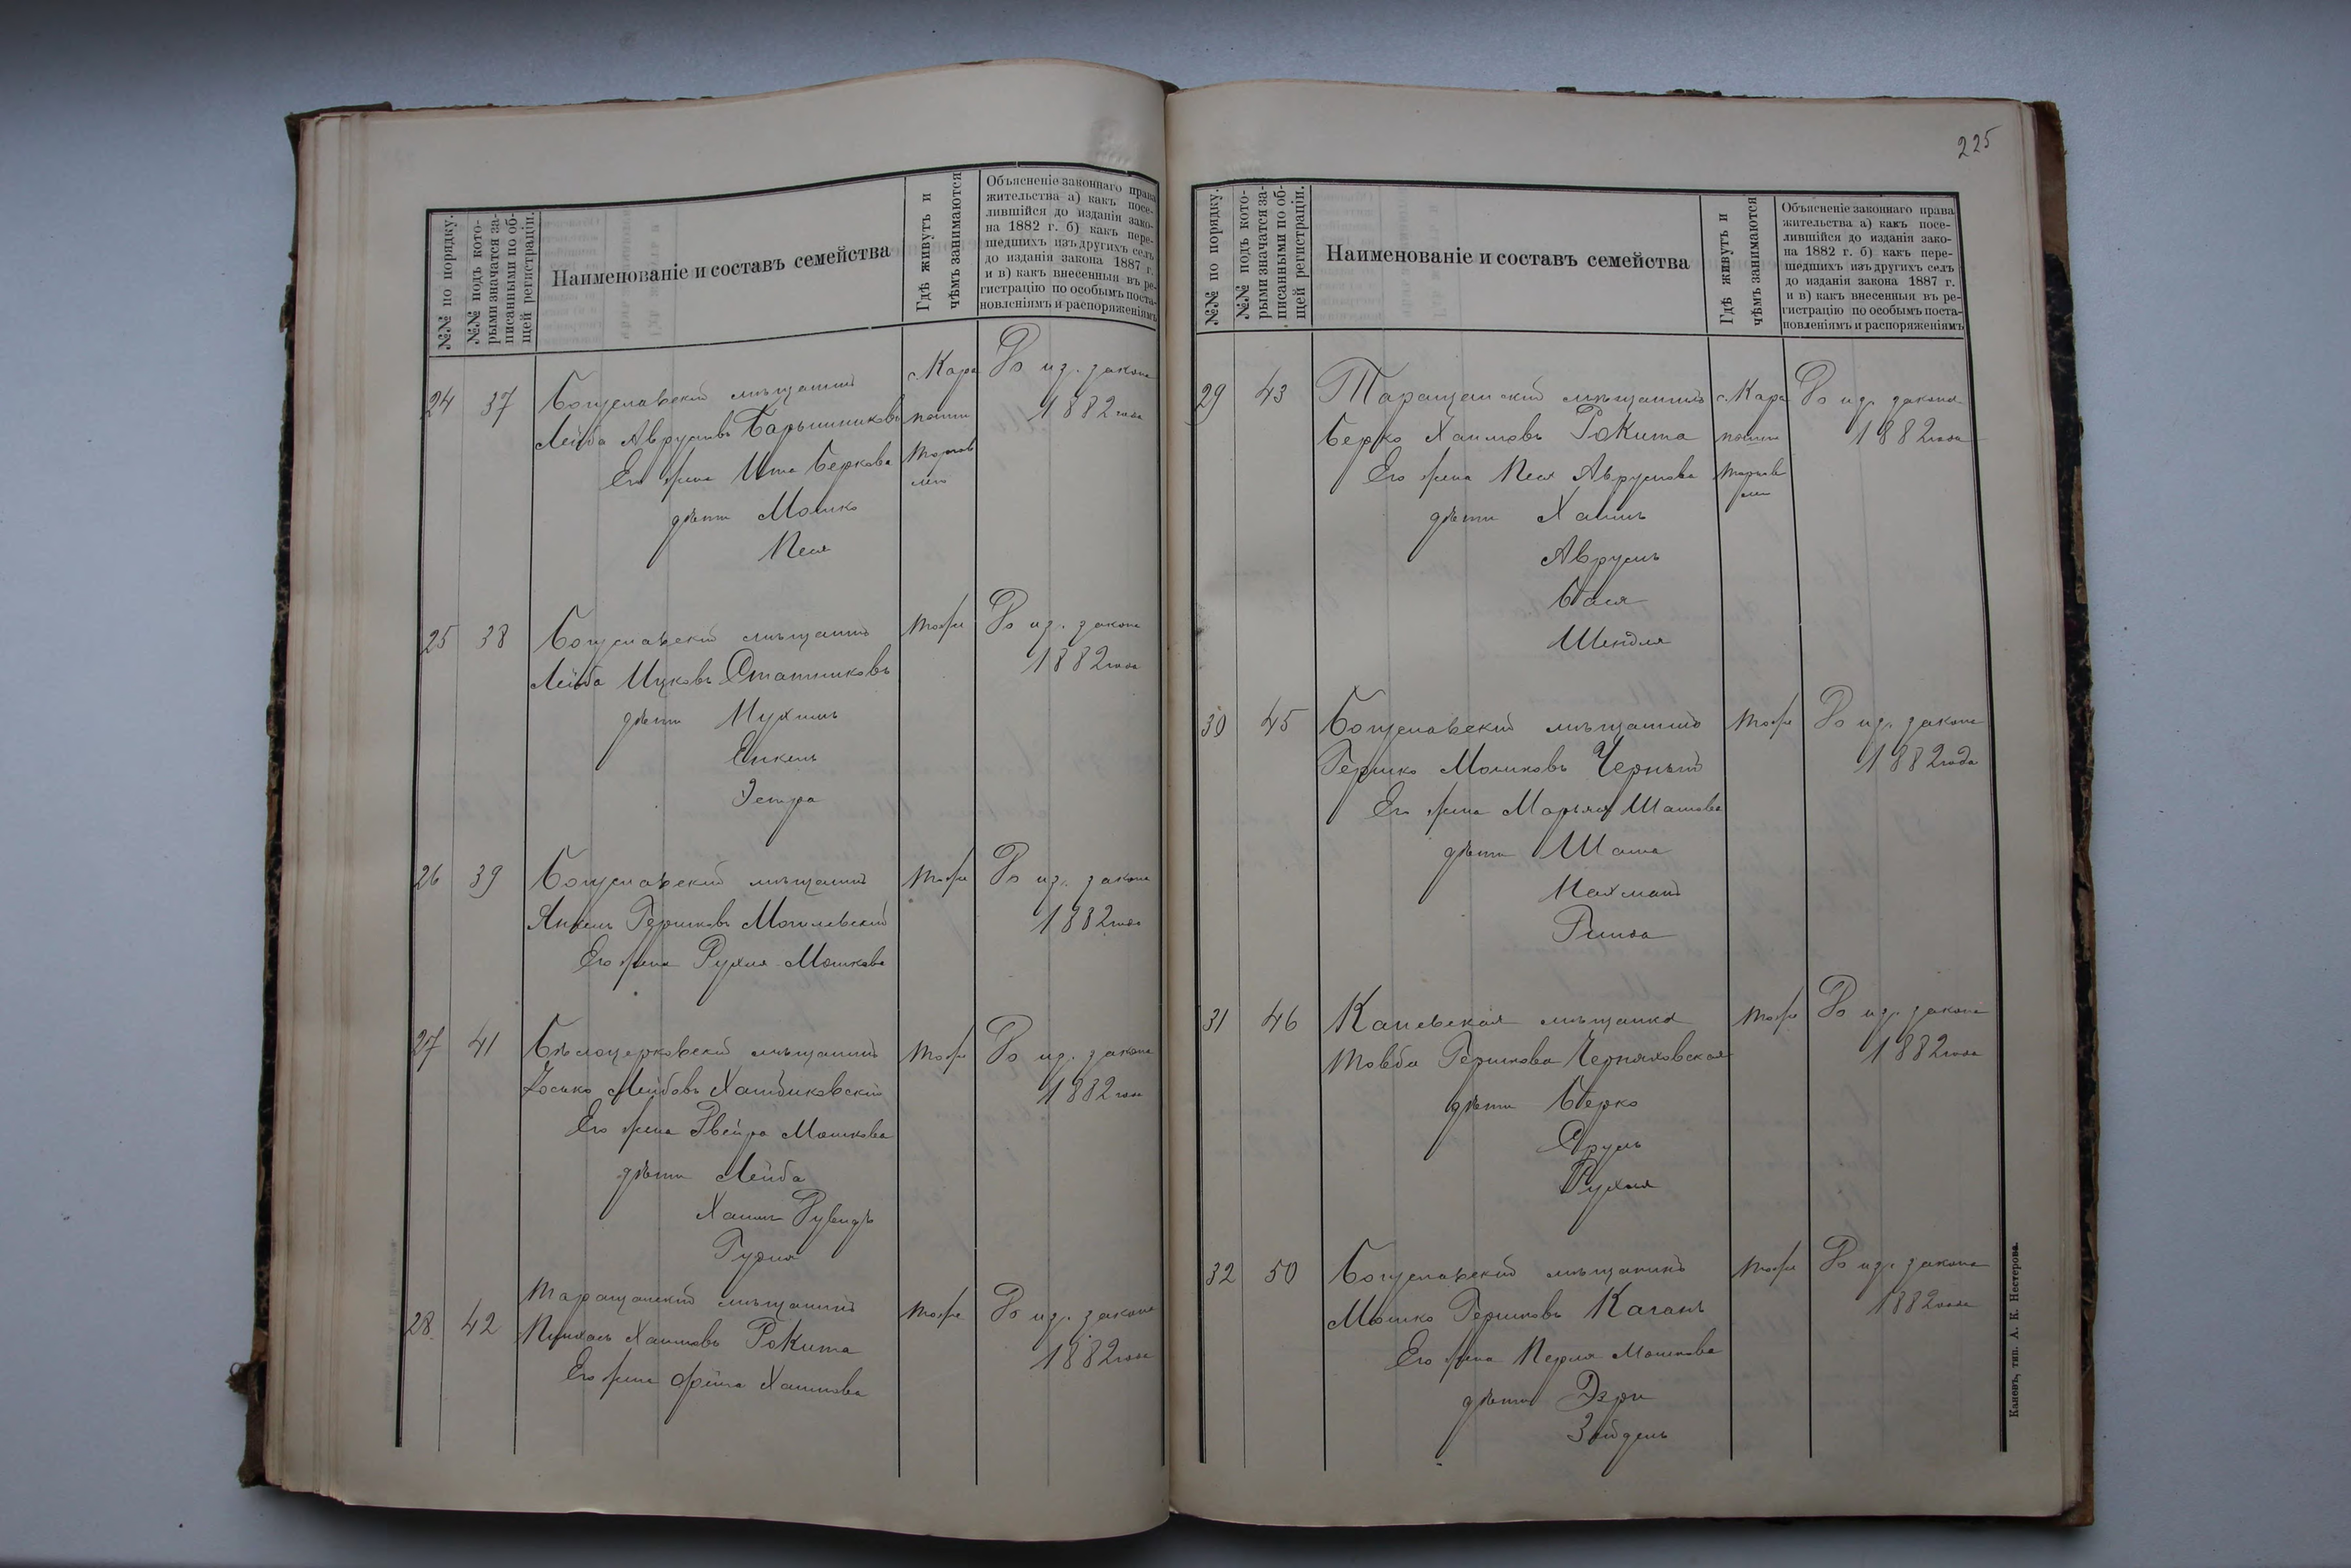 №№ по порядку.
№№ подъ кото-
рыми значатся за-
писанными по об-
щей регистраціи.
Наименованіе и составъ семейства
Гдѣ живутъ и
чѣмъ занимаются
Объясненіе законнаго права
жительства а) какъ посе-
лившійся до изданія зако-
на 1882 г. б) какъ пере-
шедшихъ изъ другихъ селъ
до изданія закона 1887 г.
и в) какъ внесенныя въ ре-
гистрацію по особымъ поста-
новленіямъ и распоряженіямъ
24 37 Богуславскій мѣщанинъ
Лейба Аврумовъ Барышниковъ
Его жена Ита Беркова
дѣти Мошко
Песя
с. Кара
пыши
торгов
лею
До из. закона
1882 года
25 38 Богуславскій мѣщанинъ
Лейба Ицковъ Статниковъ
дѣти Нухимъ
Енкель
Эстра
тоже
До из. закона
1882 года
26 39 Богуславскій мѣщанинъ
Янкель Гершковъ Могилевскій
Его жена Рухля Мошкова
тоже
До из. закона
1882 года
27 41 Бѣлоцерковскій мѣщанинъ
Іосько Лейбовъ
Его жена Двейра Мошкова
дѣти Лейба
Хаимъ Рувидъ
тоже
До из. закона
1882 года
28 42 Таращанскій мѣщанинъ
Пинхасъ Хаимовъ Рокита
Его жена Фрейга Хаимова
тоже
До из. закона
1882 года
225
№№ по порядку.
№№ подъ кото-
рыми значатся за-
писанными по об-
щей регистраціи.
Наименованіе и составъ семейства
Гдѣ живутъ и
чѣмъ занимаются
Объясненіе законнаго права
жительства а) какъ посе-
лившійся до изданія зако-
на 1882 г. б) какъ пере-
шедшихъ изъ другихъ селъ
до изданія закона 1887 г.
и в) какъ внесенныя въ ре-
гистрацію по особымъ поста-
новленіямъ и распоряженіямъ
29 43 Таращанскій мѣщанинъ
Берко Хаимовъ Рокита
Его жена Песя Аврумова
дѣти Хаимъ
Аврумъ
Бася
Шендля
с. Кара
пыши
торгов
лею
До из. закона
1882 года
30 45 Богуславскій мѣщанинъ
Гершко Мошковъ Черный
Его жена Марьяся
дѣти
Нахманъ
тоже
До из. закона
1882 года
31 46 Каневская мѣщанка
Товба Гершкова Черняховская
дѣти Берко
Сруль
Рухля
тоже
До из. закона
1882 года
32 50 Богуславскій мѣщанинъ
Мошко Гершковъ Каганъ
Его жена Перля Мошкова
дѣти
Зейдель
тоже
До из. закона
1882 года
Каневъ, тип. А. К. Нестерова.